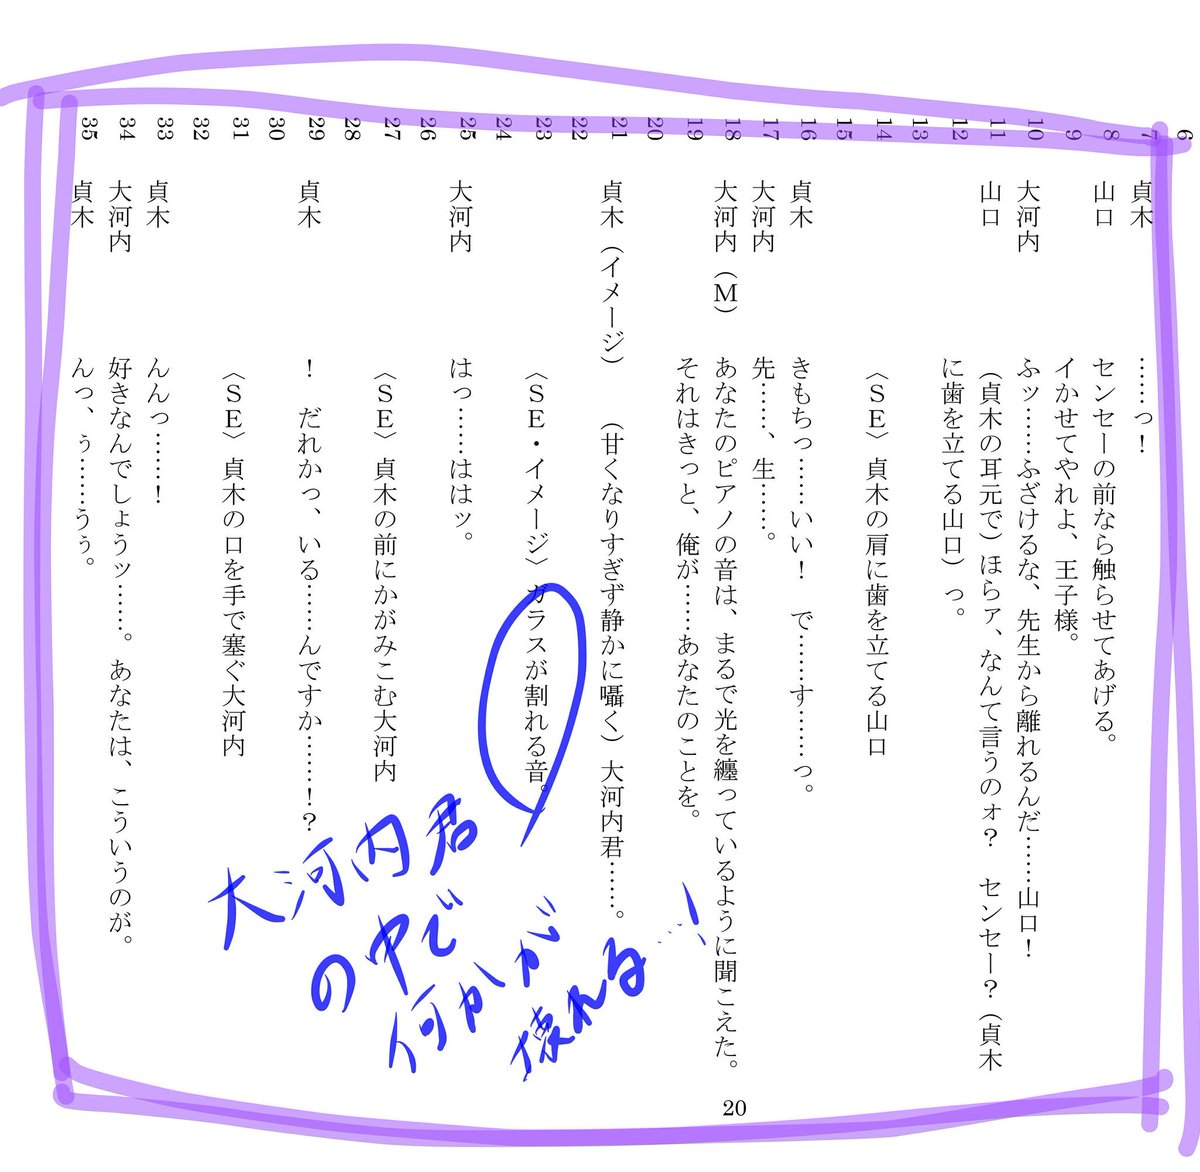 6
7 貞木 ……っ！
8 山口 センセーの前なら触らせてあげる。
9 イかせてやれよ、王子様。
10 大河内 ふッ……ふざけるな、先生から離れるんだ……山口！
11 山口 （貞木の耳元で）ほらァ、なんて言うのォ？　センセー？（貞木
12 に歯を立てる山口）っ。
13
14 〈ＳＥ〉貞木の肩に歯を立てる山口
15
16 貞木 きもちっ……いい！　で……す……っ。
17 大河内 先……、生……。
18 大河内（Ｍ） あなたのピアノの音は、まるで光を纏っているように聞こえた。
19 それはきっと、俺が……あなたのことを。
20
21 貞木（イメージ） （甘くなりすぎず静かに囁く）大河内君……。
22
23 〈ＳＥ・イメージ〉ガラスが割れる音。
24
25 大河内 はっ……ははッ。
26
27 〈ＳＥ〉貞木の前にかがみこむ大河内
28
29 貞木 ！　だれかっ、いる……んですか……！？
30
31 〈ＳＥ〉貞木の口を手で塞ぐ大河内
32
33 貞木 んんっ……！
34 大河内 好きなんでしょうッ……。あなたは、こういうのが。
35 貞木 んっ、ぅ……うぅ。
大河内君
の中で
何かが
壊れる…！
20